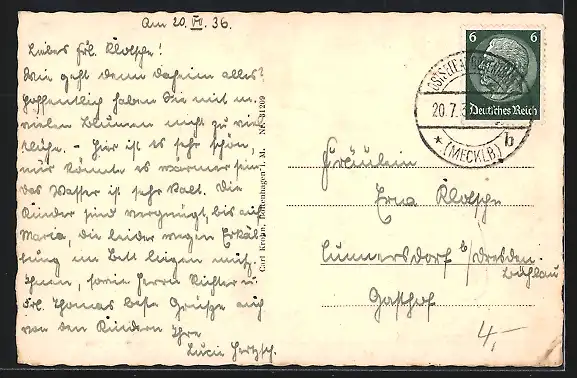 Am 20. VII. 36.
Liebes Frl. Klotsche!
Wie geht denn daheim alles?
Hoffentlich haben Sie mit m.
vielen Blumen nicht zu viel
Mühe. - Hier ist es sehr schön,
nur könnte es wärmer sein
das Wasser ist sehr kalt. Die
Kinder sind vergnügt, bis auf
Maria, die leider wegen Erkäl-
tung im Bett liegen muß.
Ihnen, sowie Herrn Richter u.
Frl. Thomas beste Grüße auch
von den Kindern Ihre
Lucie Hertzsch.
Carl Krohn, Dettenhagen i. M. Nr. 31209
6 6
Deutsches Reich
OSTSEEBAD
20.7.3
* (MECKLB) b
Fräulein
Erna Klotsche
Cunnersdorf b/Dresden
Bühlau
Gasthof
4,-